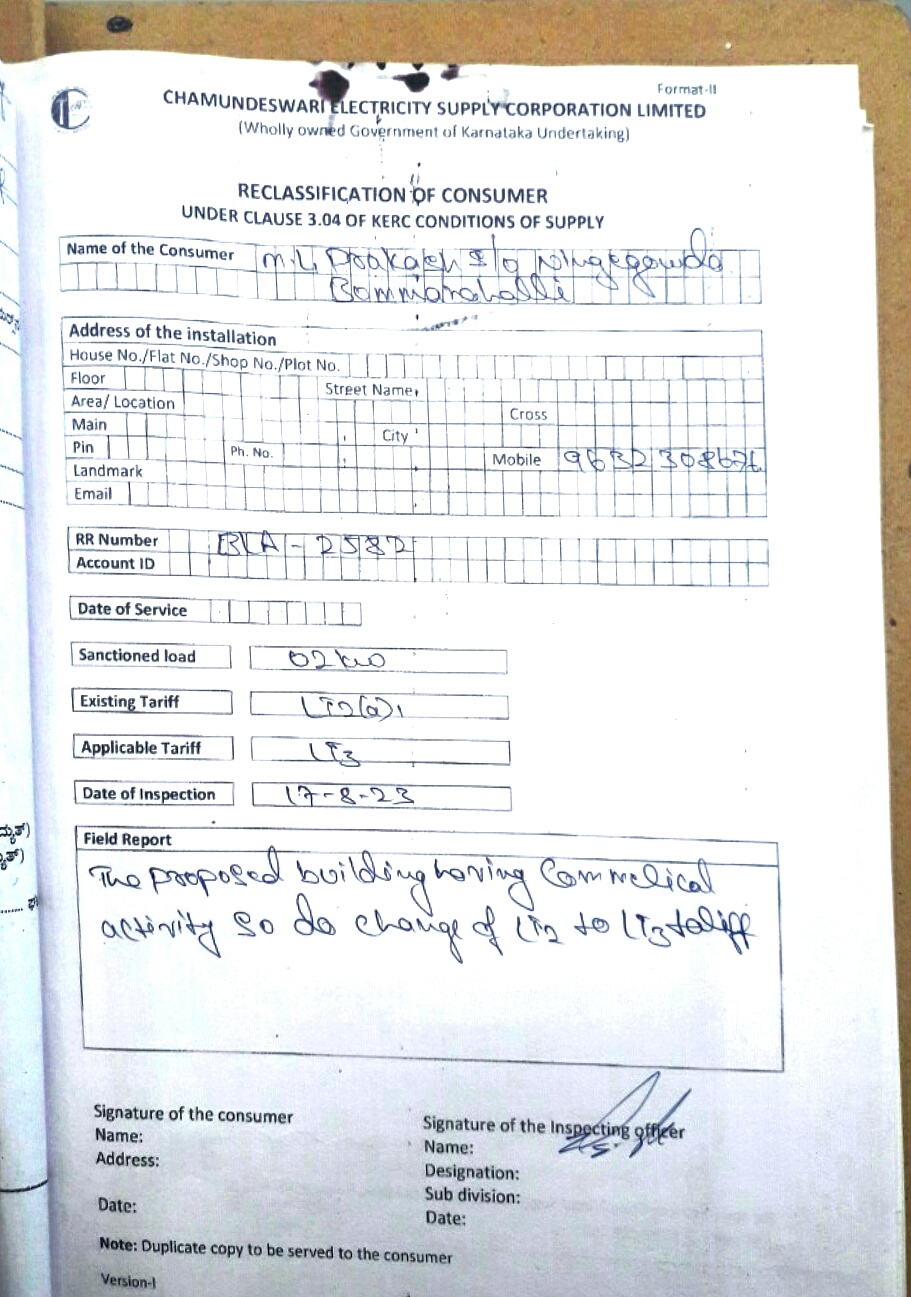 Format-II
CHAMUNDESWARI ELECTRICITY SUPPLY CORPORATION LIMITED
(Wholly owned Government of Karnataka Undertaking)
RECLASSIFICATION OF CONSUMER
UNDER CLAUSE 3.04 OF KERC CONDITIONS OF SUPPLY
Name of the Consumer M.L Prakash S/o Ningegowda
Bommanahalli
Address of the installation
House No./Flat No./Shop No./Plot No.
Floor Street Name
Area/ Location Cross
Main City
Pin Ph. No. Mobile 9632308676
Landmark
Email
RR Number BLA-2582
Account ID
Date of Service
Sanctioned load 02kw
Existing Tariff LT2(a)1
Applicable Tariff LT3
Date of Inspection 17-8-23
Field Report
The proposed building having Commelical
activity so do change of LT2 to LT3 taliff
Signature of the consumer
Name:
Address:
Date:
Signature of the Inspecting officer
Name:
Designation:
Sub division:
Date:
Note: Duplicate copy to be served to the consumer
Version-I